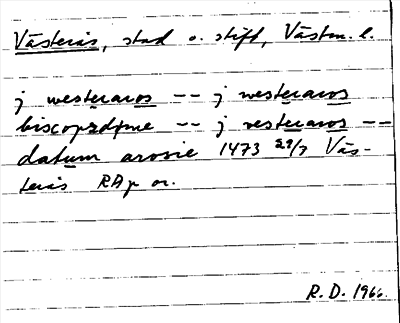 Västerås, stad o. stift, Västm. l.
j westeraros -- j westeraros
biscopsdøme -- j vesteraros --
datum arosie 1473 29/7 Väs-
terås RAp or.
R. D. 1966.